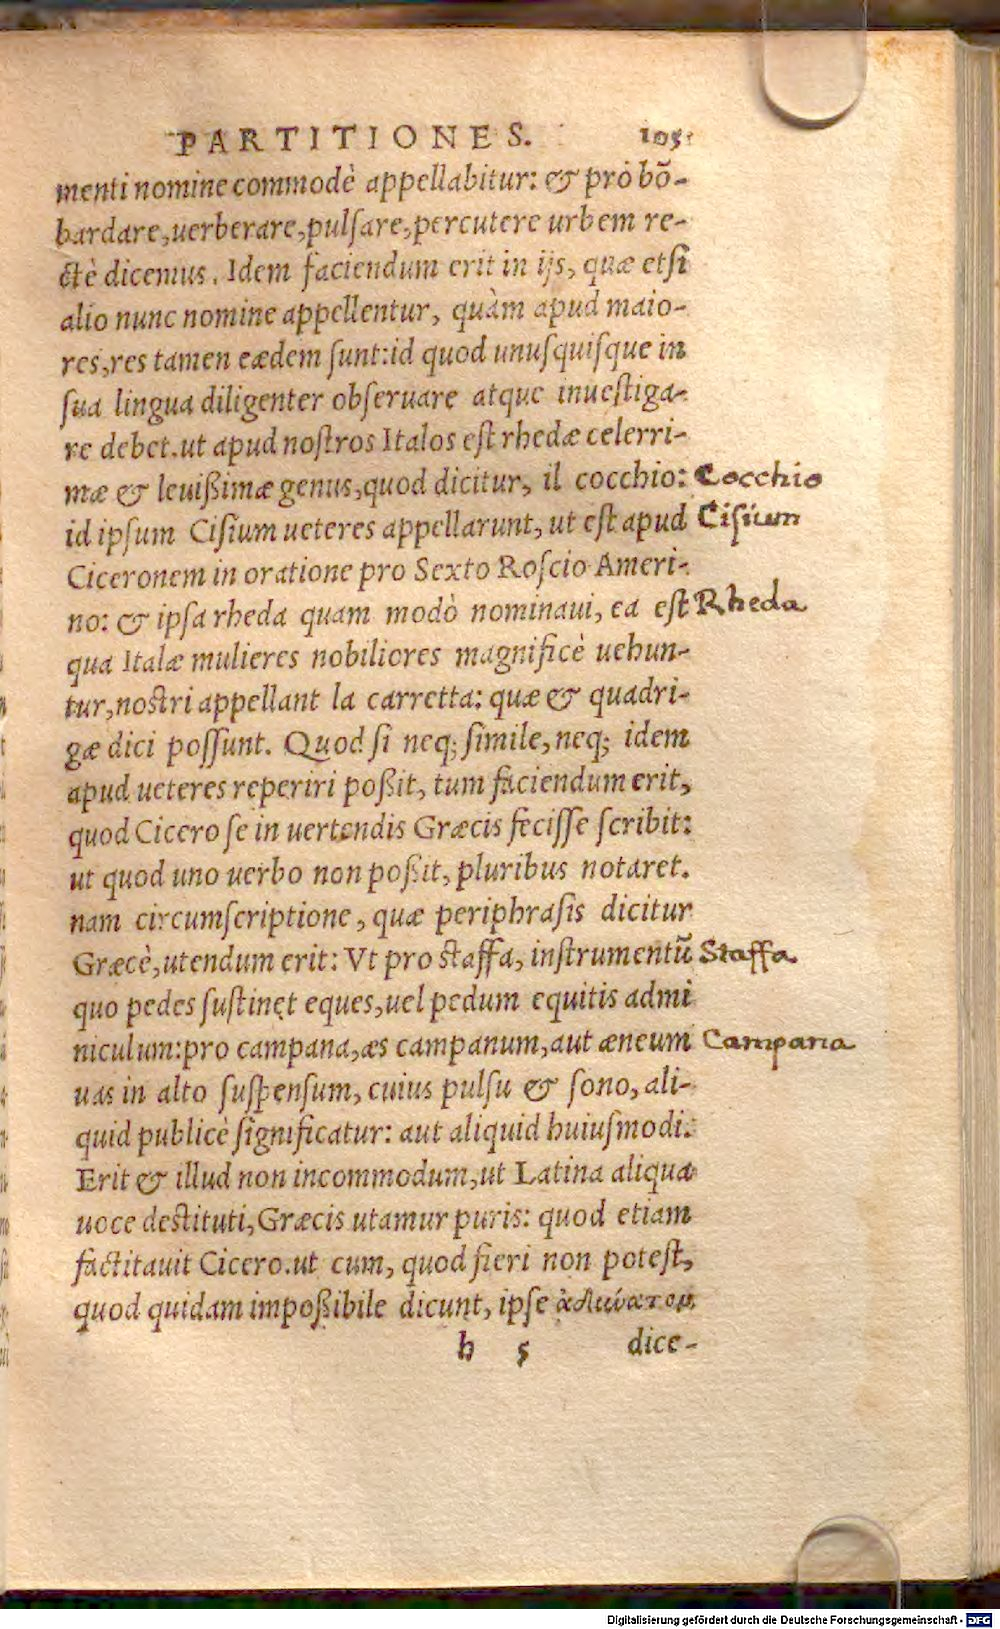 PARTITIONES. 105
menti nomine commodè appellabitur: & pro bō-
bardare, uerberare, pulſare, percutere urbem re-
ctè dicemus. Idem faciendum erit in ijs, quæ etſi
alio nunc nomine appellentur, quàm apud maio-
res, res tamen eædem ſunt: id quod unuſquiſque in
ſua lingua diligenter obſeruare atque inueſtiga-
re debet. ut apud noſtros Italos eſt rhedæ celerri-
mæ & leuißimæ genus, quod dicitur, il cocchio: Cocchio
id ipſum Ciſium ueteres appellarunt, ut eſt apud Ciſium
Ciceronem in oratione pro Sexto Roſcio Ameri-
no: & ipſa rheda quam modò nominaui, ea eſt Rheda
qua Italæ mulieres nobiliores magnificè uehun-
tur, noſtri appellant la carretta: quæ & quadri-
gæ dici poſſunt. Quod ſi neq; ſimile, neq; idem
apud ueteres reperiri poßit, tum faciendum erit,
quod Cicero ſe in uertendis Græcis feciſſe ſcribit:
ut quod uno uerbo non poßit, pluribus notaret.
nam circumſcriptione, quæ periphraſis dicitur
Græcè, utendum erit: Vt pro ſtaffa, inſtrumentũ Staffa
quo pedes ſuſtinet eques, uel pedum equitis admi
niculum: pro campana, æs campanum, aut æneum Campana
uas in alto ſuſpenſum, cuius pulſu & ſono, ali-
quid publicè ſignificatur: aut aliquid huiuſmodi.
Erit & illud non incommodum, ut Latina aliqua
uoce deſtituti, Græcis utamur puris: quod etiam
factitauit Cicero. ut cum, quod fieri non poteſt,
quod quidam impoßibile dicunt, ipſe ἀδιώατομ
h 5 dice-
Digitalisierung gefördert durch die Deutsche Forschungsgemeinschaft - DFG